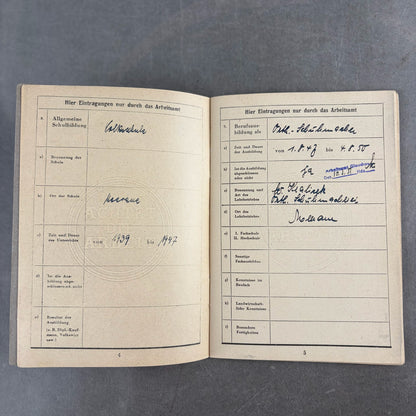 Hier Eintragungen nur durch das Arbeitsamt
Allgemeine
Schulbildung
Volksschule
a) Benennung der
Schule
b) Ort der Schule
Meerane
c) Zeit und Dauer
des Unterrichts
von 1939 bis 1947
d) Ist die Aus-
bildung abge-
schlossen
e) Resultat der
Ausbildung
(z. B. Dipl.-Kauf-
mann, Volkswirt
4
Hier Eintragungen nur durch das Arbeitsamt
Berufsaus-
bildung als
Orth.-Schuhmacher
a) Zeit und Dauer
der Ausbildung
von 1.8.47 bis 4.8.50
b) Ist die Ausbildung
abgeschlossen
oder nicht
ja
c) Benennung und
Art des
Lehrbetriebes
Orth. Schuhmacherei
d) Ort des
Lehrbetriebes
Meerane
e) I. Fachschule
II. Hochschule
f) Sonstige
g) Kenntnisse im
h) Landwirtschaft-
liche Kenntnisse
i) Besondere
Fertigkeiten
5